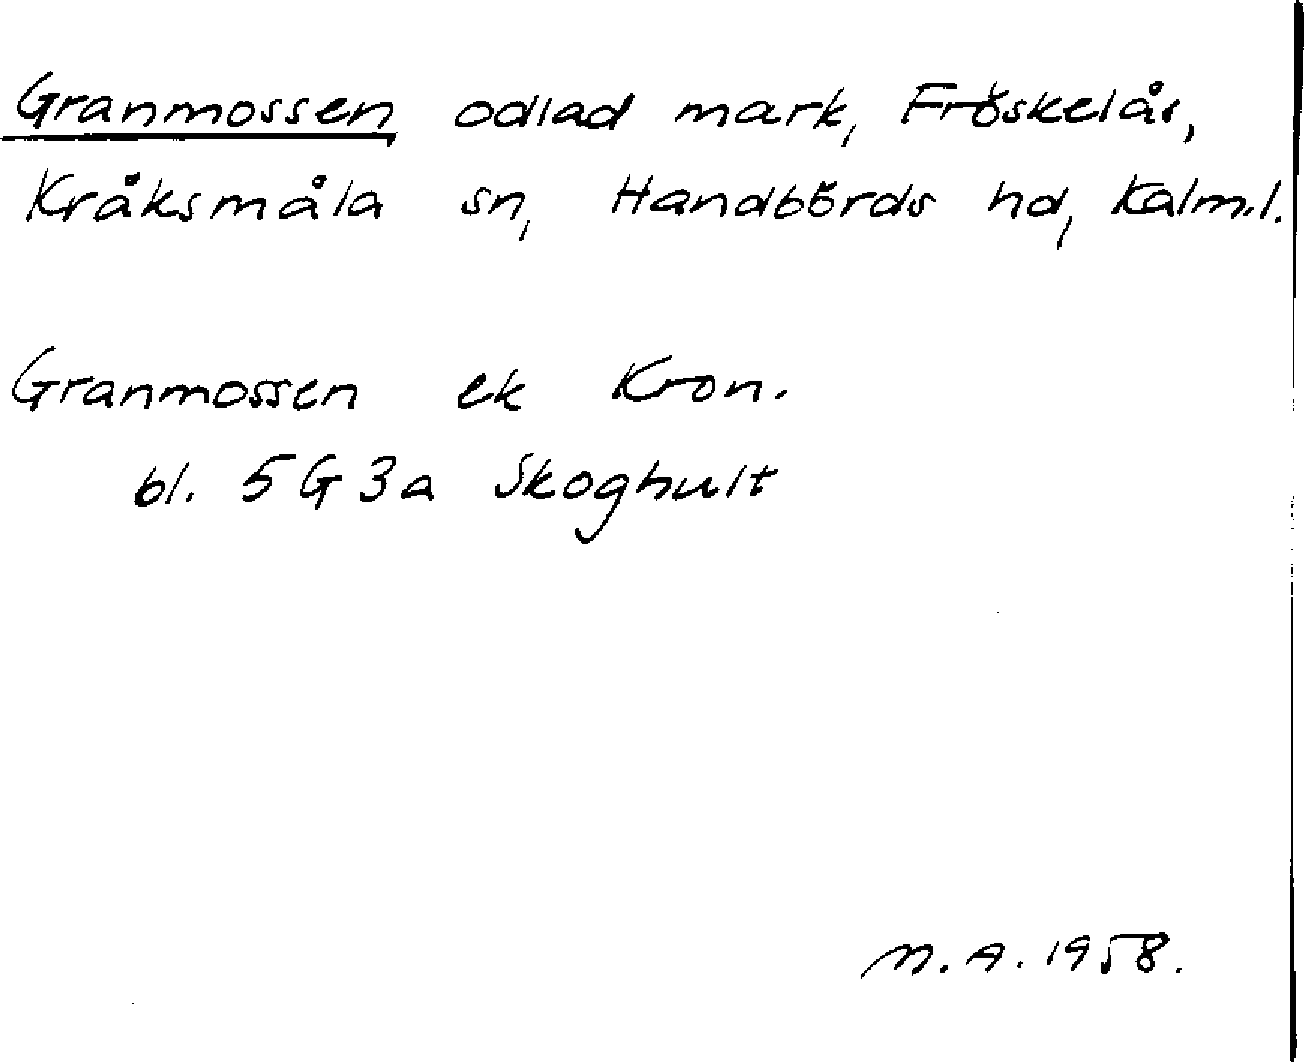 Granmossen odlad mark, Fröskelås,
Kråksmåla sn, Handbörds hd, Kalm.l.
Granmossen ek Kron.
bl. 5G3a Skoghult
M.A. 1958.